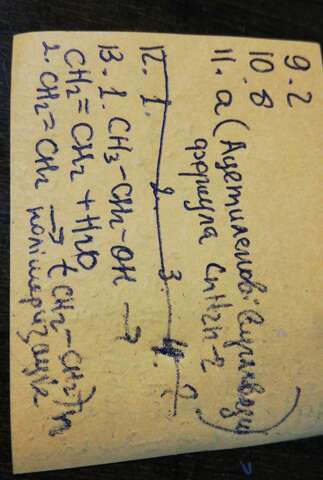 9. г
10. в
11. а (Ацетиленові вуглеводні
формула CnH2n-2)
12. 1. 2. 3. 4. ?
13. 1. CH3-CH2-OH →
CH2=CH2 + H2O
2. CH2=CH2 → (CH2-CH2)n
полімеризація